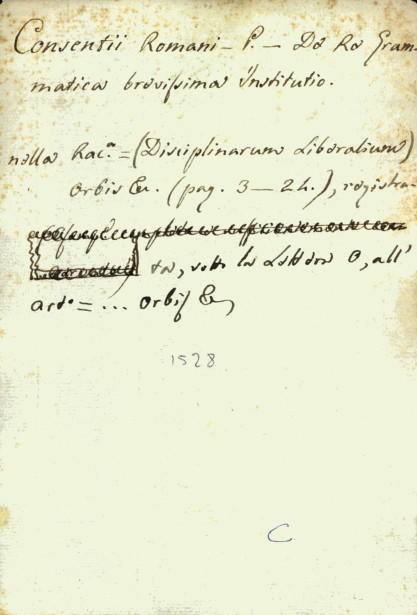 Consentii Romani – P. – De Re Gram-
matica brevissima Institutio.
nella Rac.ª = (Disciplinarum Liberalium)
Orbis &c. (pag. 3 – 24.), registra-
ta, sotto la Lettera O, all'
art.º = ... Orbis &c,
1528
C